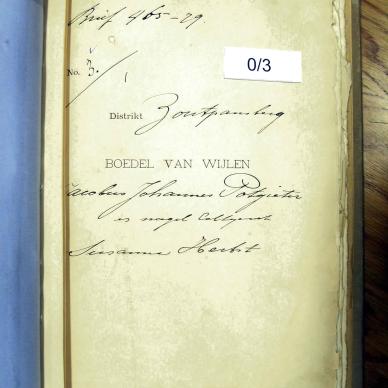 Brief 465-29.
0/3
No. 3/1
Distrikt Zoutpansberg
BOEDEL VAN WIJLEN
Jacobus Johannes Potgieter
en nagel
Susanna Herbst